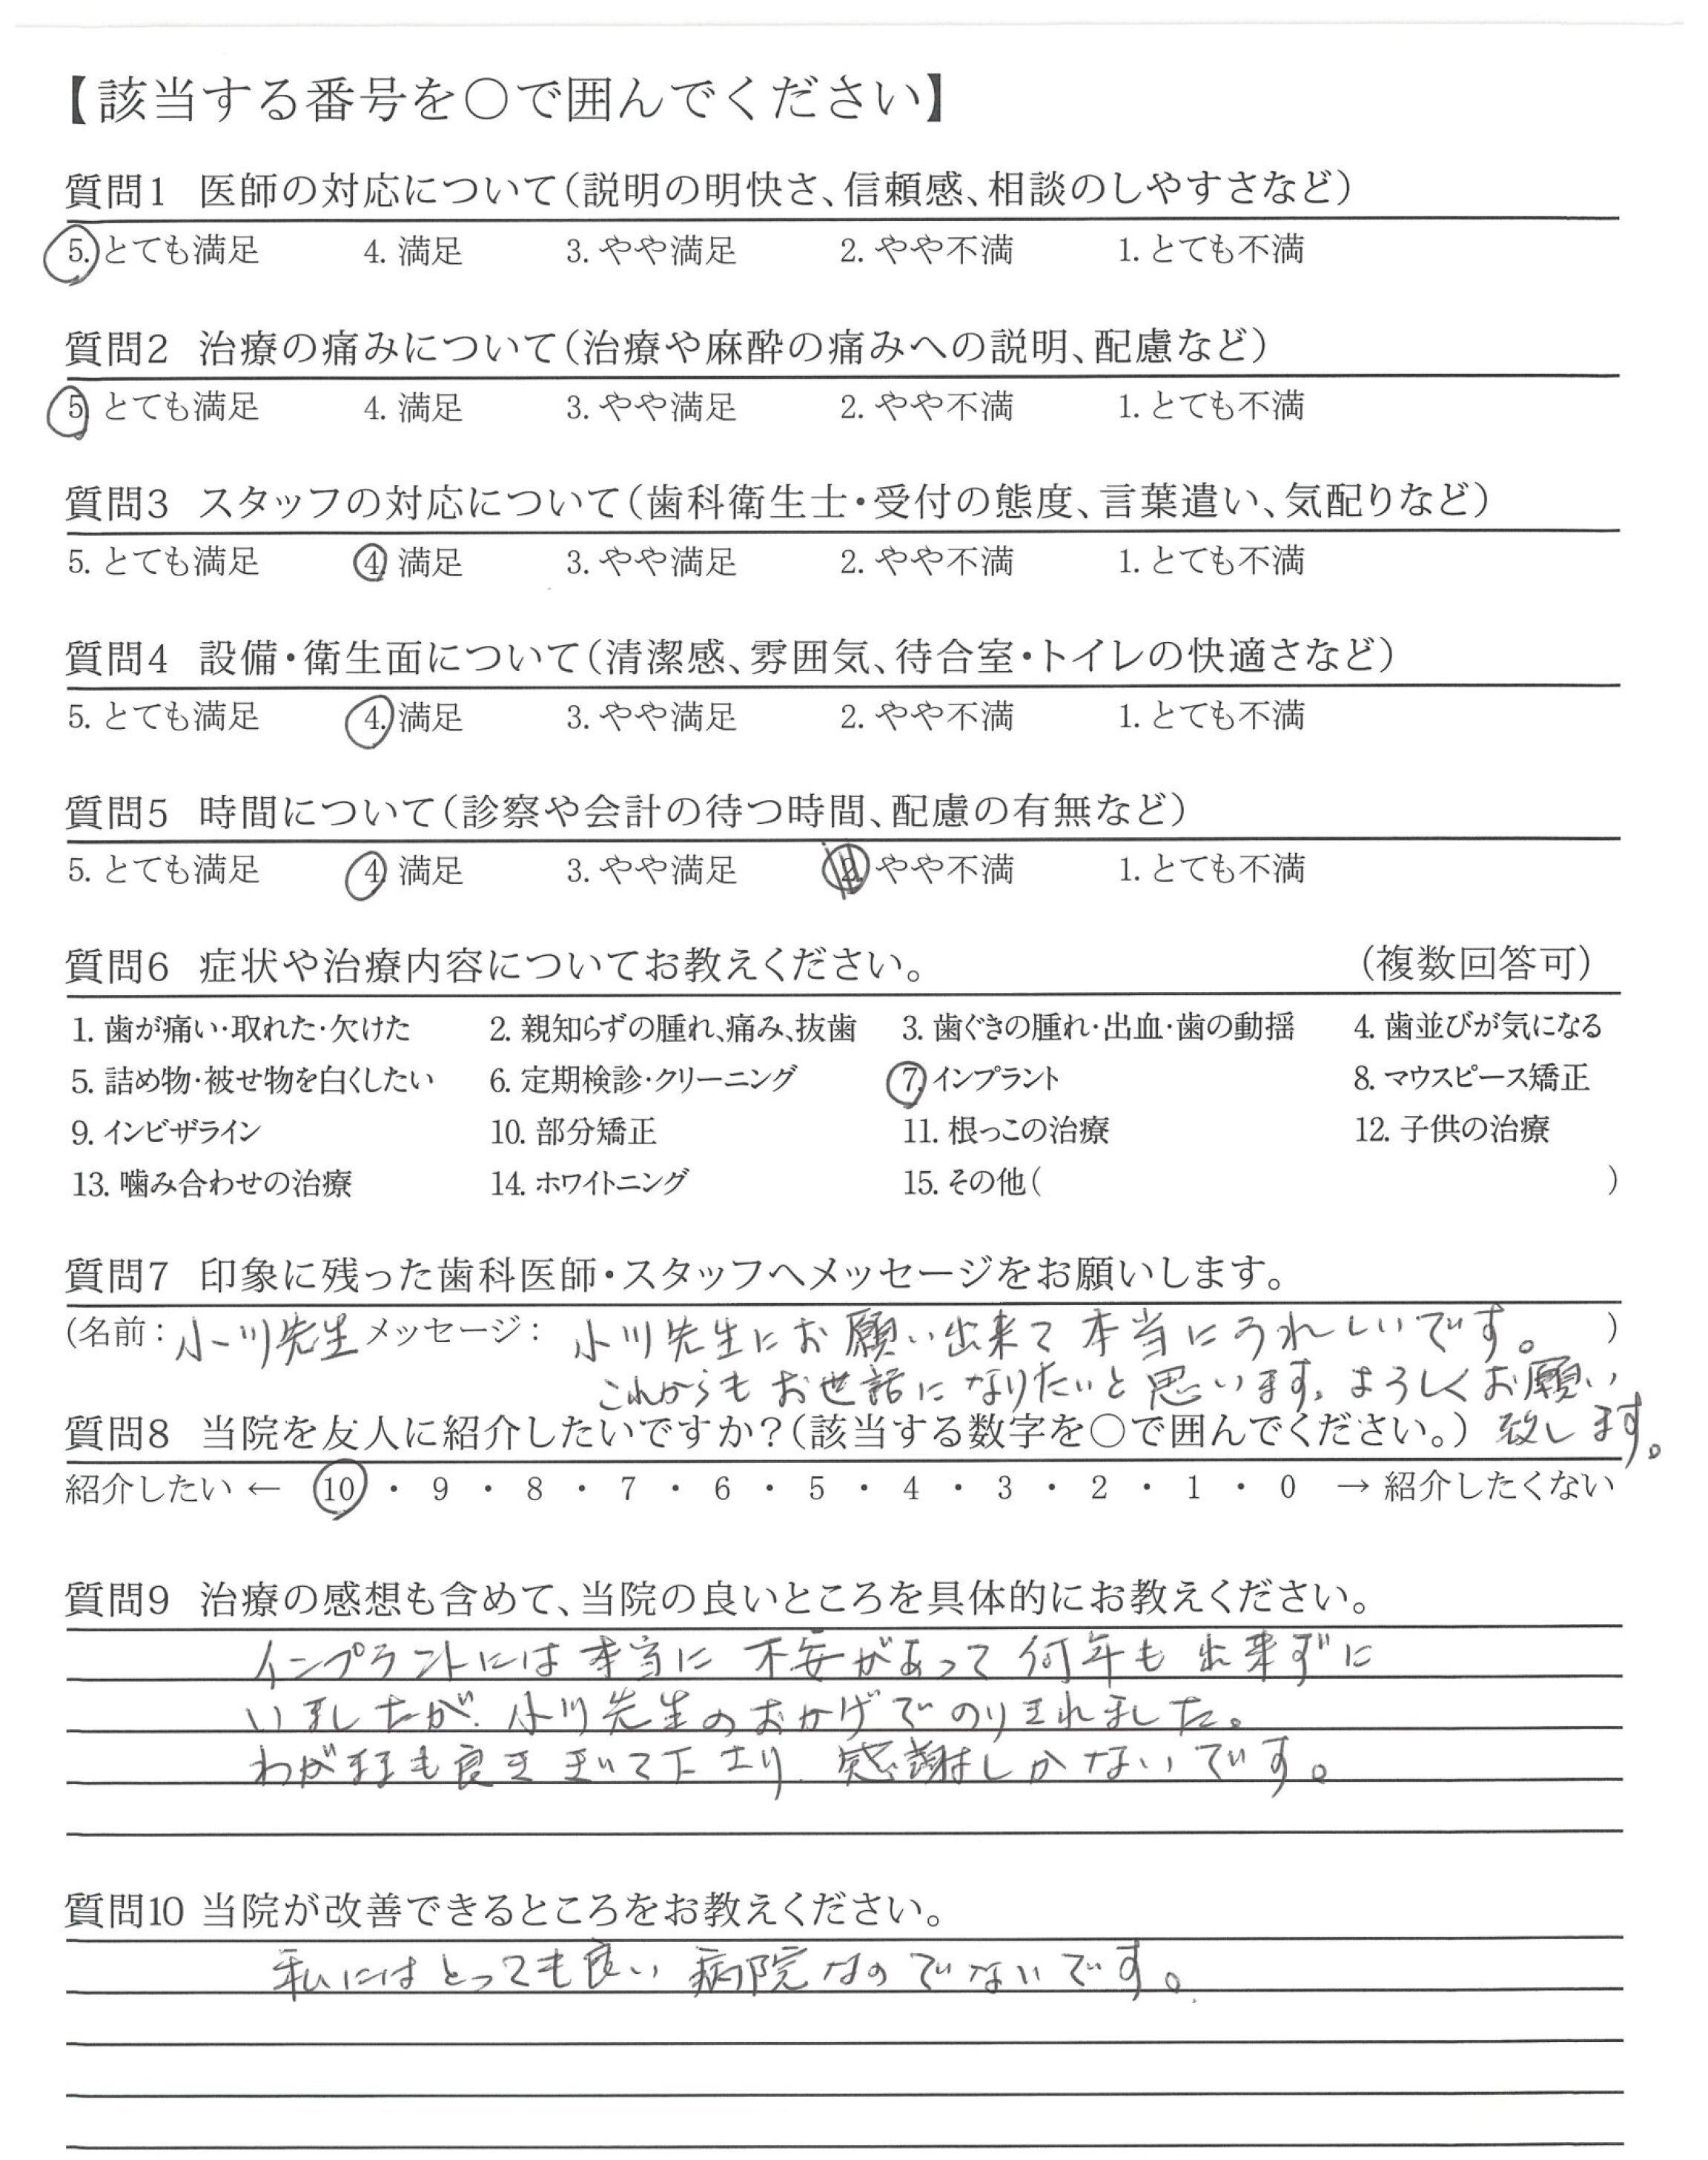 【該当する番号を〇で囲んでください】
質問1 医師の対応について（説明の明快さ、信頼感、相談のしやすさなど）
5. とても満足 4. 満足 3. やや満足 2. やや不満 1. とても不満
質問2 治療の痛みについて（治療や麻酔の痛みへの説明、配慮など）
5. とても満足 4. 満足 3. やや満足 2. やや不満 1. とても不満
質問3 スタッフの対応について（歯科衛生士・受付の態度、言葉遣い、気配りなど）
5. とても満足 4. 満足 3. やや満足 2. やや不満 1. とても不満
質問4 設備・衛生面について（清潔感、雰囲気、待合室・トイレの快適さなど）
5. とても満足 4. 満足 3. やや満足 2. やや不満 1. とても不満
質問5 時間について（診察や会計の待つ時間、配慮の有無など）
5. とても満足 4. 満足 3. やや満足 2. やや不満 1. とても不満
質問6 症状や治療内容についてお教えください。 （複数回答可）
1. 歯が痛い・取れた・欠けた 2. 親知らずの腫れ、痛み、抜歯 3. 歯ぐきの腫れ・出血・歯の動揺 4. 歯並びが気になる
5. 詰め物・被せ物を白くしたい 6. 定期検診・クリーニング 7. インプラント 8. マウスピース矯正
9. インビザライン 10. 部分矯正 11. 根っこの治療 12. 子供の治療
13. 噛み合わせの治療 14. ホワイトニング 15. その他（ ）
質問7 印象に残った歯科医師・スタッフへメッセージをお願いします。
（名前：小川先生 メッセージ： 小川先生にお願い出来て本当にうれしいです。 ）
これからもお世話になりたいと思います。よろしくお願い
致します。
質問8 当院を友人に紹介したいですか？（該当する数字を〇で囲んでください。）
紹介したい ← 10 ・ 9 ・ 8 ・ 7 ・ 6 ・ 5 ・ 4 ・ 3 ・ 2 ・ 1 ・ 0 → 紹介したくない
質問9 治療の感想も含めて、当院の良いところを具体的にお教えください。
インプラントには本当に不安があって何年も出来ずに
いましたが、小川先生のおかげでのりきれました。
わがままも良くきいて下さり、感謝しかないです。
質問10 当院が改善できるところをお教えください。
私にはとっても良い病院なのでないです。